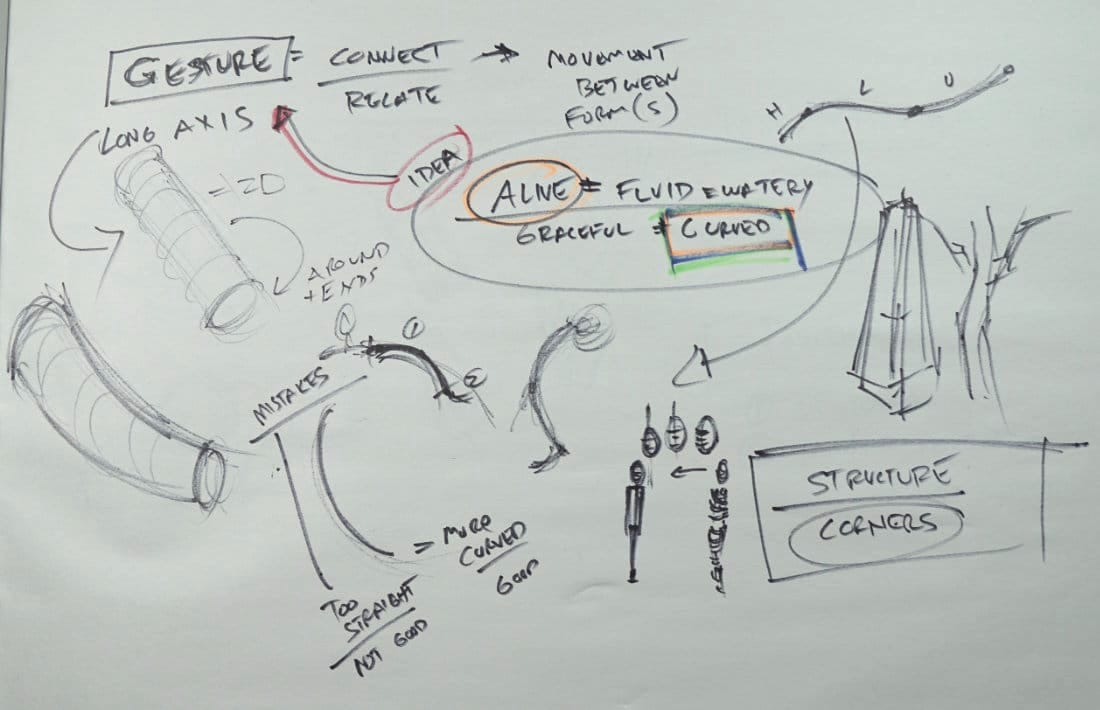 GESTURE = CONNECT → MOVEMENT
RELATE
BETWEEN
FORM(S)
LONG AXIS
= 2D
AROUND
+ ENDS
IDEA
ALIVE = FLUID = WATERY
GRACEFUL = CURVED
H L U
MISTAKES
1
2
= MORE
CURVED
GOOD
TOO
STRAIGHT
NOT GOOD
STRUCTURE
CORNERS